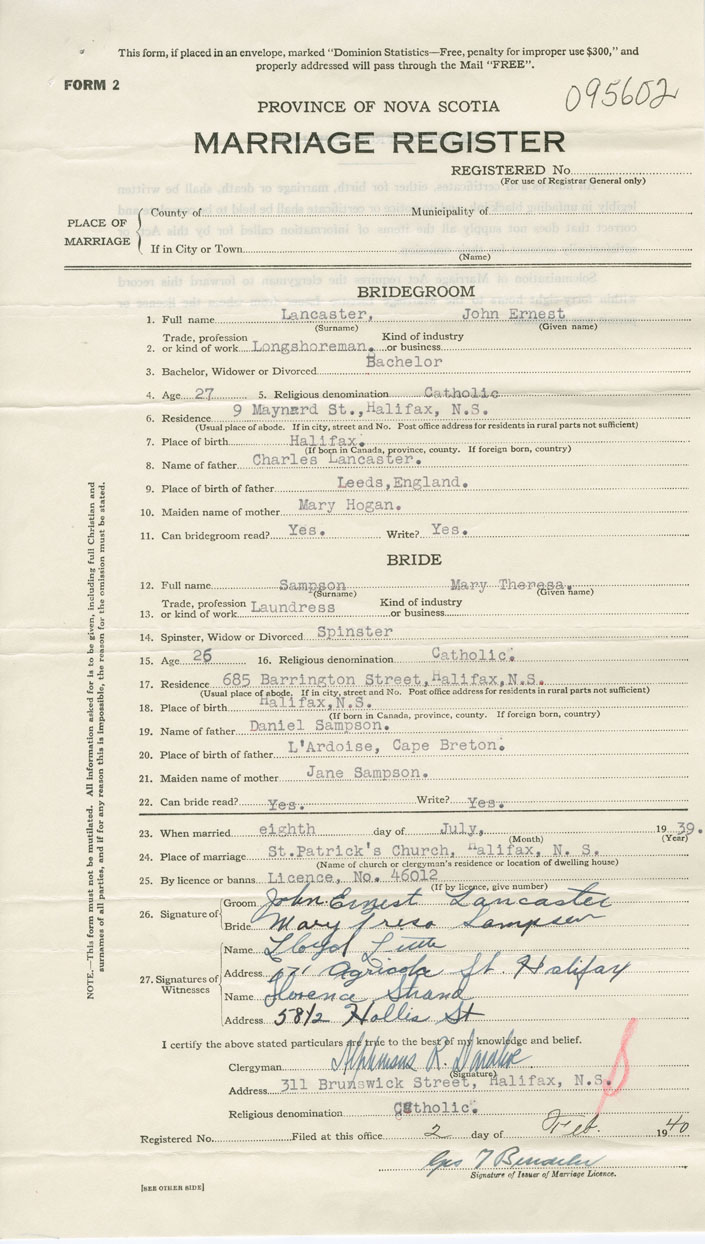 This form, if placed in an envelope, marked "Dominion Statistics—Free, penalty for improper use $300," and
properly addressed will pass through the Mail "FREE".
FORM 2
095602
PROVINCE OF NOVA SCOTIA
MARRIAGE REGISTER
REGISTERED No.
(For use of Registrar General only)
PLACE OF MARRIAGE
County of Municipality of
If in City or Town
(Name)
BRIDEGROOM
1. Full name Lancaster, John Ernest
(Surname) (Given name)
Trade, profession Kind of industry
2. or kind of work Longshoreman. or business
3. Bachelor, Widower or Divorced Bachelor
4. Age 27 5. Religious denomination Catholic
6. Residence 9 Maynard St., Halifax, N.S.
(Usual place of abode. If in city, street and No. Post office address for residents in rural parts not sufficient)
7. Place of birth Halifax.
(If born in Canada, province, county. If foreign born, country)
8. Name of father Charles Lancaster.
9. Place of birth of father Leeds, England.
10. Maiden name of mother Mary Hogan.
11. Can bridegroom read? Yes. Write? Yes.
BRIDE
12. Full name Sampson Mary Theresa.
(Surname) (Given name)
Trade, profession Kind of industry
13. or kind of work Laundress or business
14. Spinster, Widow or Divorced Spinster
15. Age 26 16. Religious denomination Catholic.
17. Residence 685 Barrington Street, Halifax, N.S.
(Usual place of abode. If in city, street and No. Post office address for residents in rural parts not sufficient)
18. Place of birth Halifax, N.S.
(If born in Canada, province, county. If foreign born, country)
19. Name of father Daniel Sampson.
20. Place of birth of father L'Ardoise, Cape Breton.
21. Maiden name of mother Jane Sampson.
22. Can bride read? Yes. Write? Yes.
23. When married eighth day of July, 1939.
(Month) (Year)
24. Place of marriage St. Patrick's Church, Halifax, N. S.
(Name of church or clergyman's residence or location of dwelling house)
25. By licence or banns Licence, No. 46012
(If by licence, give number)
26. Signature of
Groom John Ernest Lancaster
Bride Mary Sampson
27. Signatures of Witnesses
Name Lloyd
Address Agricola St. Halifax
Name Florence Strand
Address 58 1/2 Hollis St
I certify the above stated particulars are true to the best of my knowledge and belief.
Clergyman Alphonsus R.
(Signature)
Address 311 Brunswick Street, Halifax, N.S.
Religious denomination Catholic.
Registered No. Filed at this office 2 day of Feb. 1940
Geo T
Signature of Issuer of Marriage Licence.
[SEE OTHER SIDE]
NOTE.—This form must not be mutilated. All information asked for is to be given, including full Christian and
surnames of all parties, and if for any reason this is impossible, the reason for the omission must be stated.